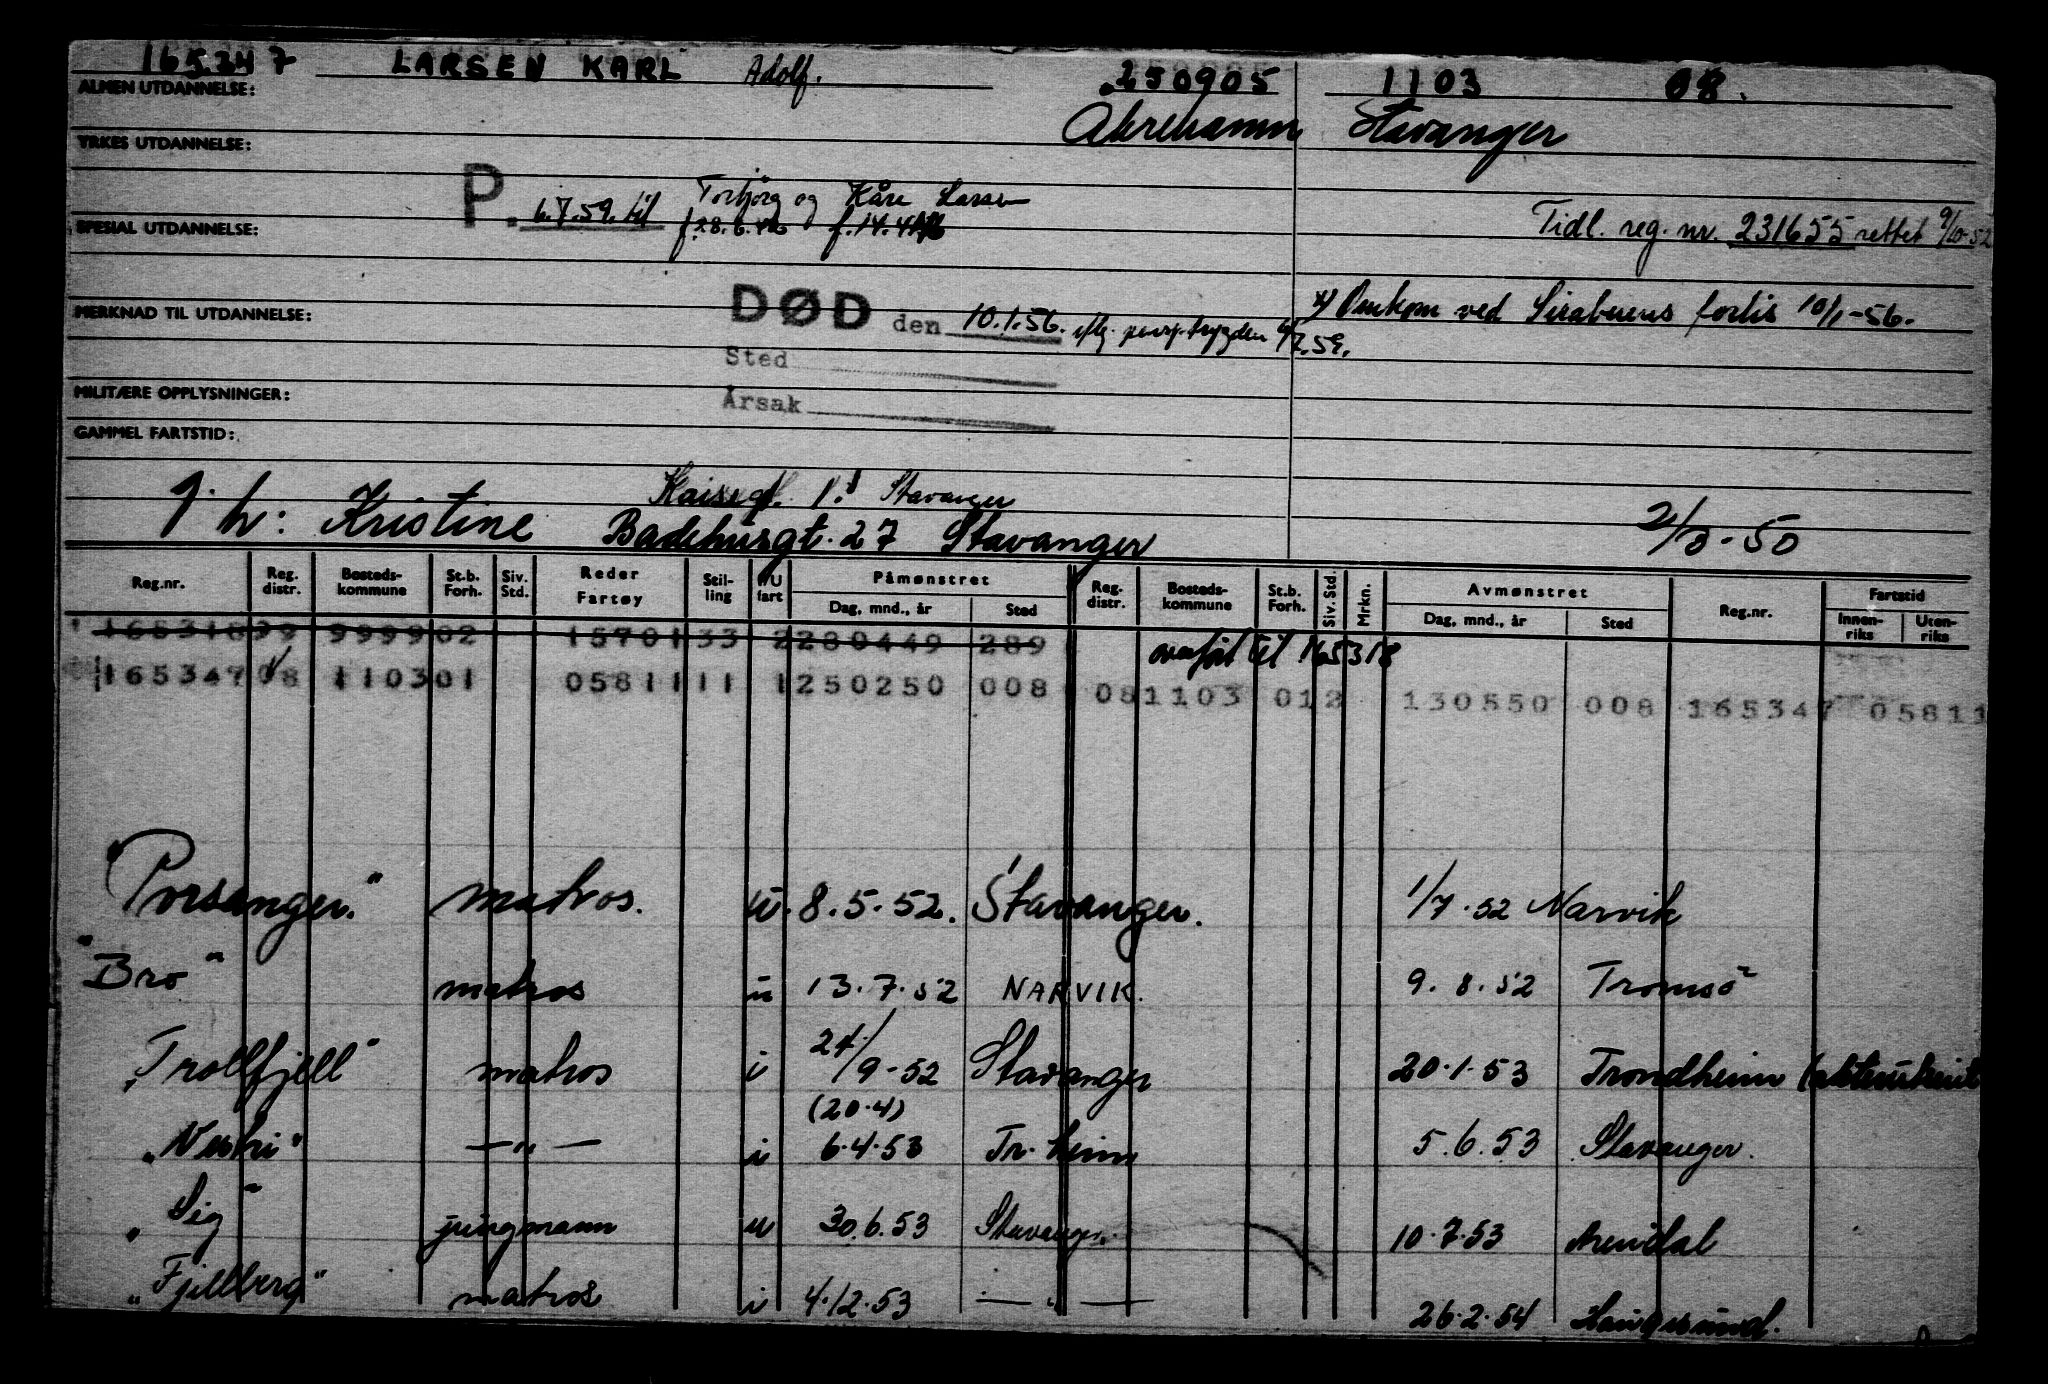 165347 LARSEN KARL Adolf. 250905 1103 08.
ALMEN UTDANNELSE:
Åkrehamn Stavanger
YRKES UTDANNELSE:
P. 6.7.59. til Torbjörg og Kåre Larsen
f. 28.6.46 f. 14.4
Tidl. reg. nr. 231655 rettet 9/10-52
SPESIAL UTDANNELSE:
x) Omkom ved forlis 10/1-56.
MERKNAD TIL UTDANNELSE:
DØD den 10.1.56. iflg. 6/7.59.
Sted
MILITÆRE OPPLYSNINGER:
Årsak
GAMMEL FARTSTID:
Stavanger
g. h: Kristine Badehusgt. 27 Stavanger 2/8-50
Reg.nr. Reg. distr. Bosteds-kommune St.b. Forh. Siv. Std. Reder Fartøy Stil-ling I/U fart Påmønstret Reg. distr. Bosteds-kommune St.b. Forh. Siv. Std. Mrkn. Avmønstret Reg.nr. Fartstid
Dag, mnd., år Sted Dag, mnd., år Sted Innen-riks Uten-riks
165318 99 9999 02 15701 33 2 280449 289 overført til 165318
165347 08 1103 01 05811 11 1 250250 008 08 1103 01 2 130550 008 165347 05811
"Porsanger" matros. u. 8.5.52. Stavanger. 1/7.52 Narvik
"Bro" matros u 13.7.52 NARVIK. 9.8.52 Tromsö
"Trollfjell" matros i 24/9-52 Stavanger 20.1.53 Trondheim
(20.4)
— " — i 6.4.53 Tr. heim 5.6.53 Stavanger.
"Sig" jungmann u 30.6.53 Stavanger. 10.7.53 Arendal
"Fjellberg" matros i 4.12.53 — " — 26.2.54 Haugesund.